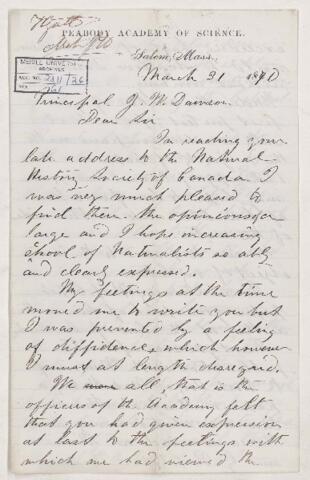 Hyatt
Mch /70
PEABODY ACADEMY OF SCIENCE.
Salem, Mass.
March 31 1870
McGILL UNIVERSITY
ARCHIVES
ACC. NO.
REF.
Principal J. W. Dawson
Dear Sir
In reading your
late address to the Natural
History Society of Canada I
was very much pleased to
find there the opinions of a
large and I hope increasing
school of Naturalists so ably
and clearly expressed.
My feelings at the time
moved me to write you but
I was prevented by a feeling
of diffidence, which however
I must at length disregard.
We all, that is the
officers of the Academy felt
that you had given expression
at last to the feelings with
which we had viewed the